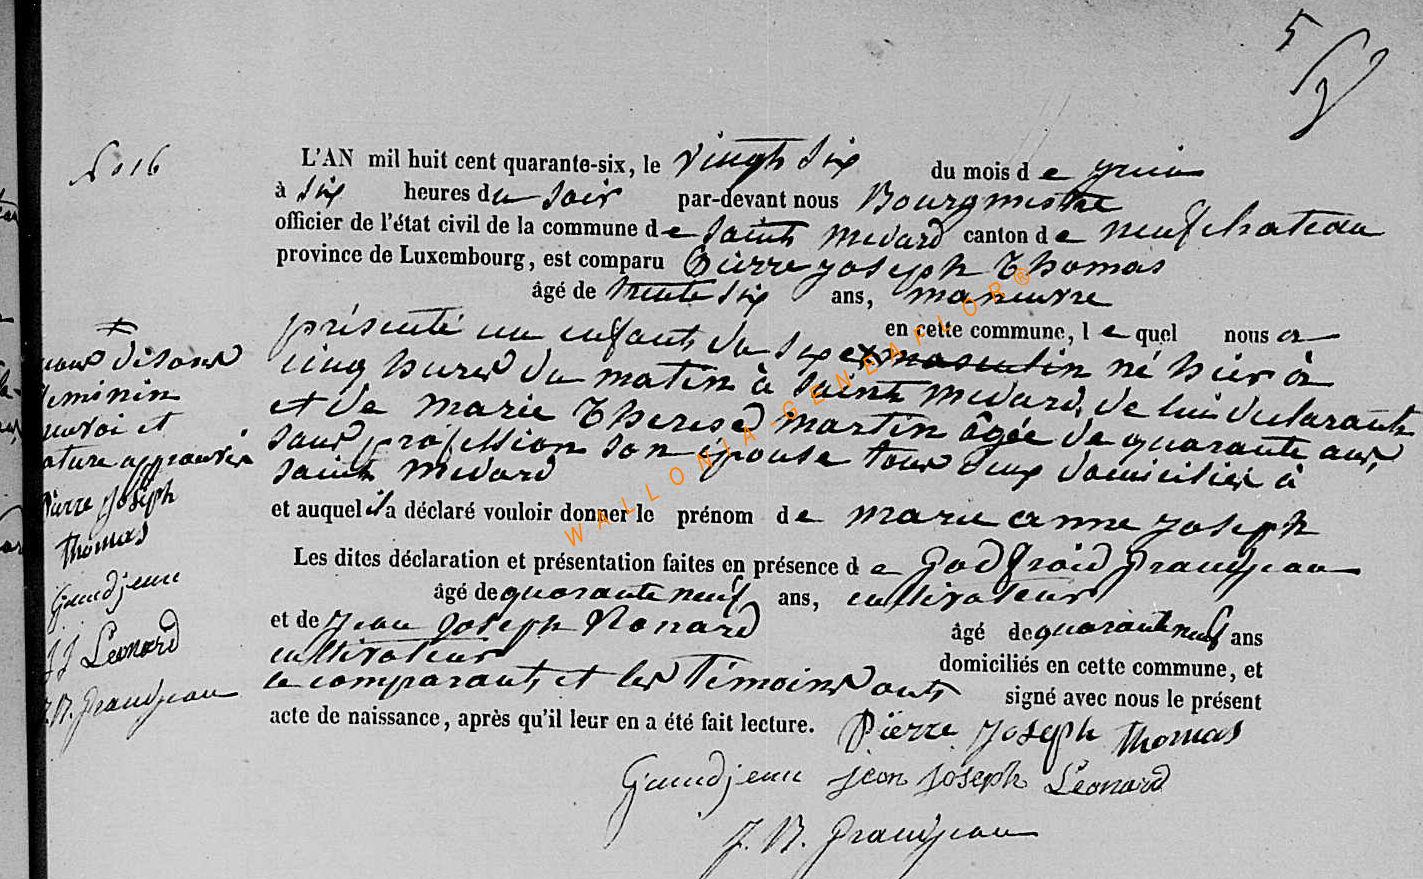 5
No 16
L'AN mil huit cent quarante-six, le vingt six du mois de juin
à six heures du soir par-devant nous Bourgmestre
officier de l'état civil de la commune de Saint Medard canton de neufchateau
province de Luxembourg, est comparu Pierre joseph Thomas
âgé de trente six ans, manœuvre
en cette commune, lequel nous a
présenté un enfant du sexe masculin né hier à
cinq heures du matin à Saint Medard, de lui declarant
et de marie Therese martin âgée de quarante ans,
sans profession son épouse tous deux domiciliés à
Saint Medard
et auquel il a déclaré vouloir donner le prénom de marie anne joseph
Les dites déclaration et présentation faites en présence de Godfroid Grandjean
âgé de quarante neuf ans, cultivateur
et de jean joseph Leonard âgé de quarante neuf ans
cultivateur domiciliés en cette commune, et
le comparant et les Témoins ont signé avec nous le présent
acte de naissance, après qu'il leur en a été fait lecture. Pierre joseph Thomas
Grandjean jean joseph Léonard
J. N. Grandjean
nous disons
feminin
renvoi et
rature approuvés
Pierre joseph
Thomas
Grandjean
JJ Leonard
J. N. Grandjean
WALLONIA GENEAFLOR®